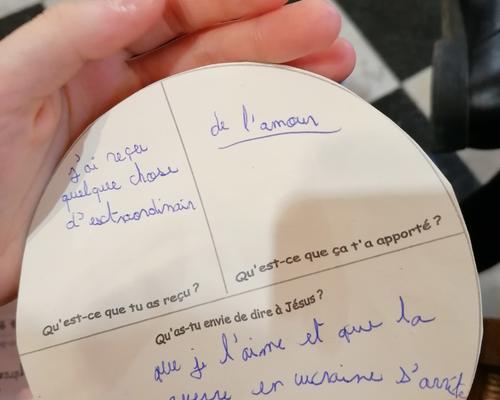 J'ai reçu
quelque chose
d'extraordinair
Qu'est-ce que tu as reçu ?
de l'amour
Qu'est-ce que ça t'a apporté ?
Qu'as-tu envie de dire à Jésus ?
que je l'aime et que la
guerre en ucraine s'arrête